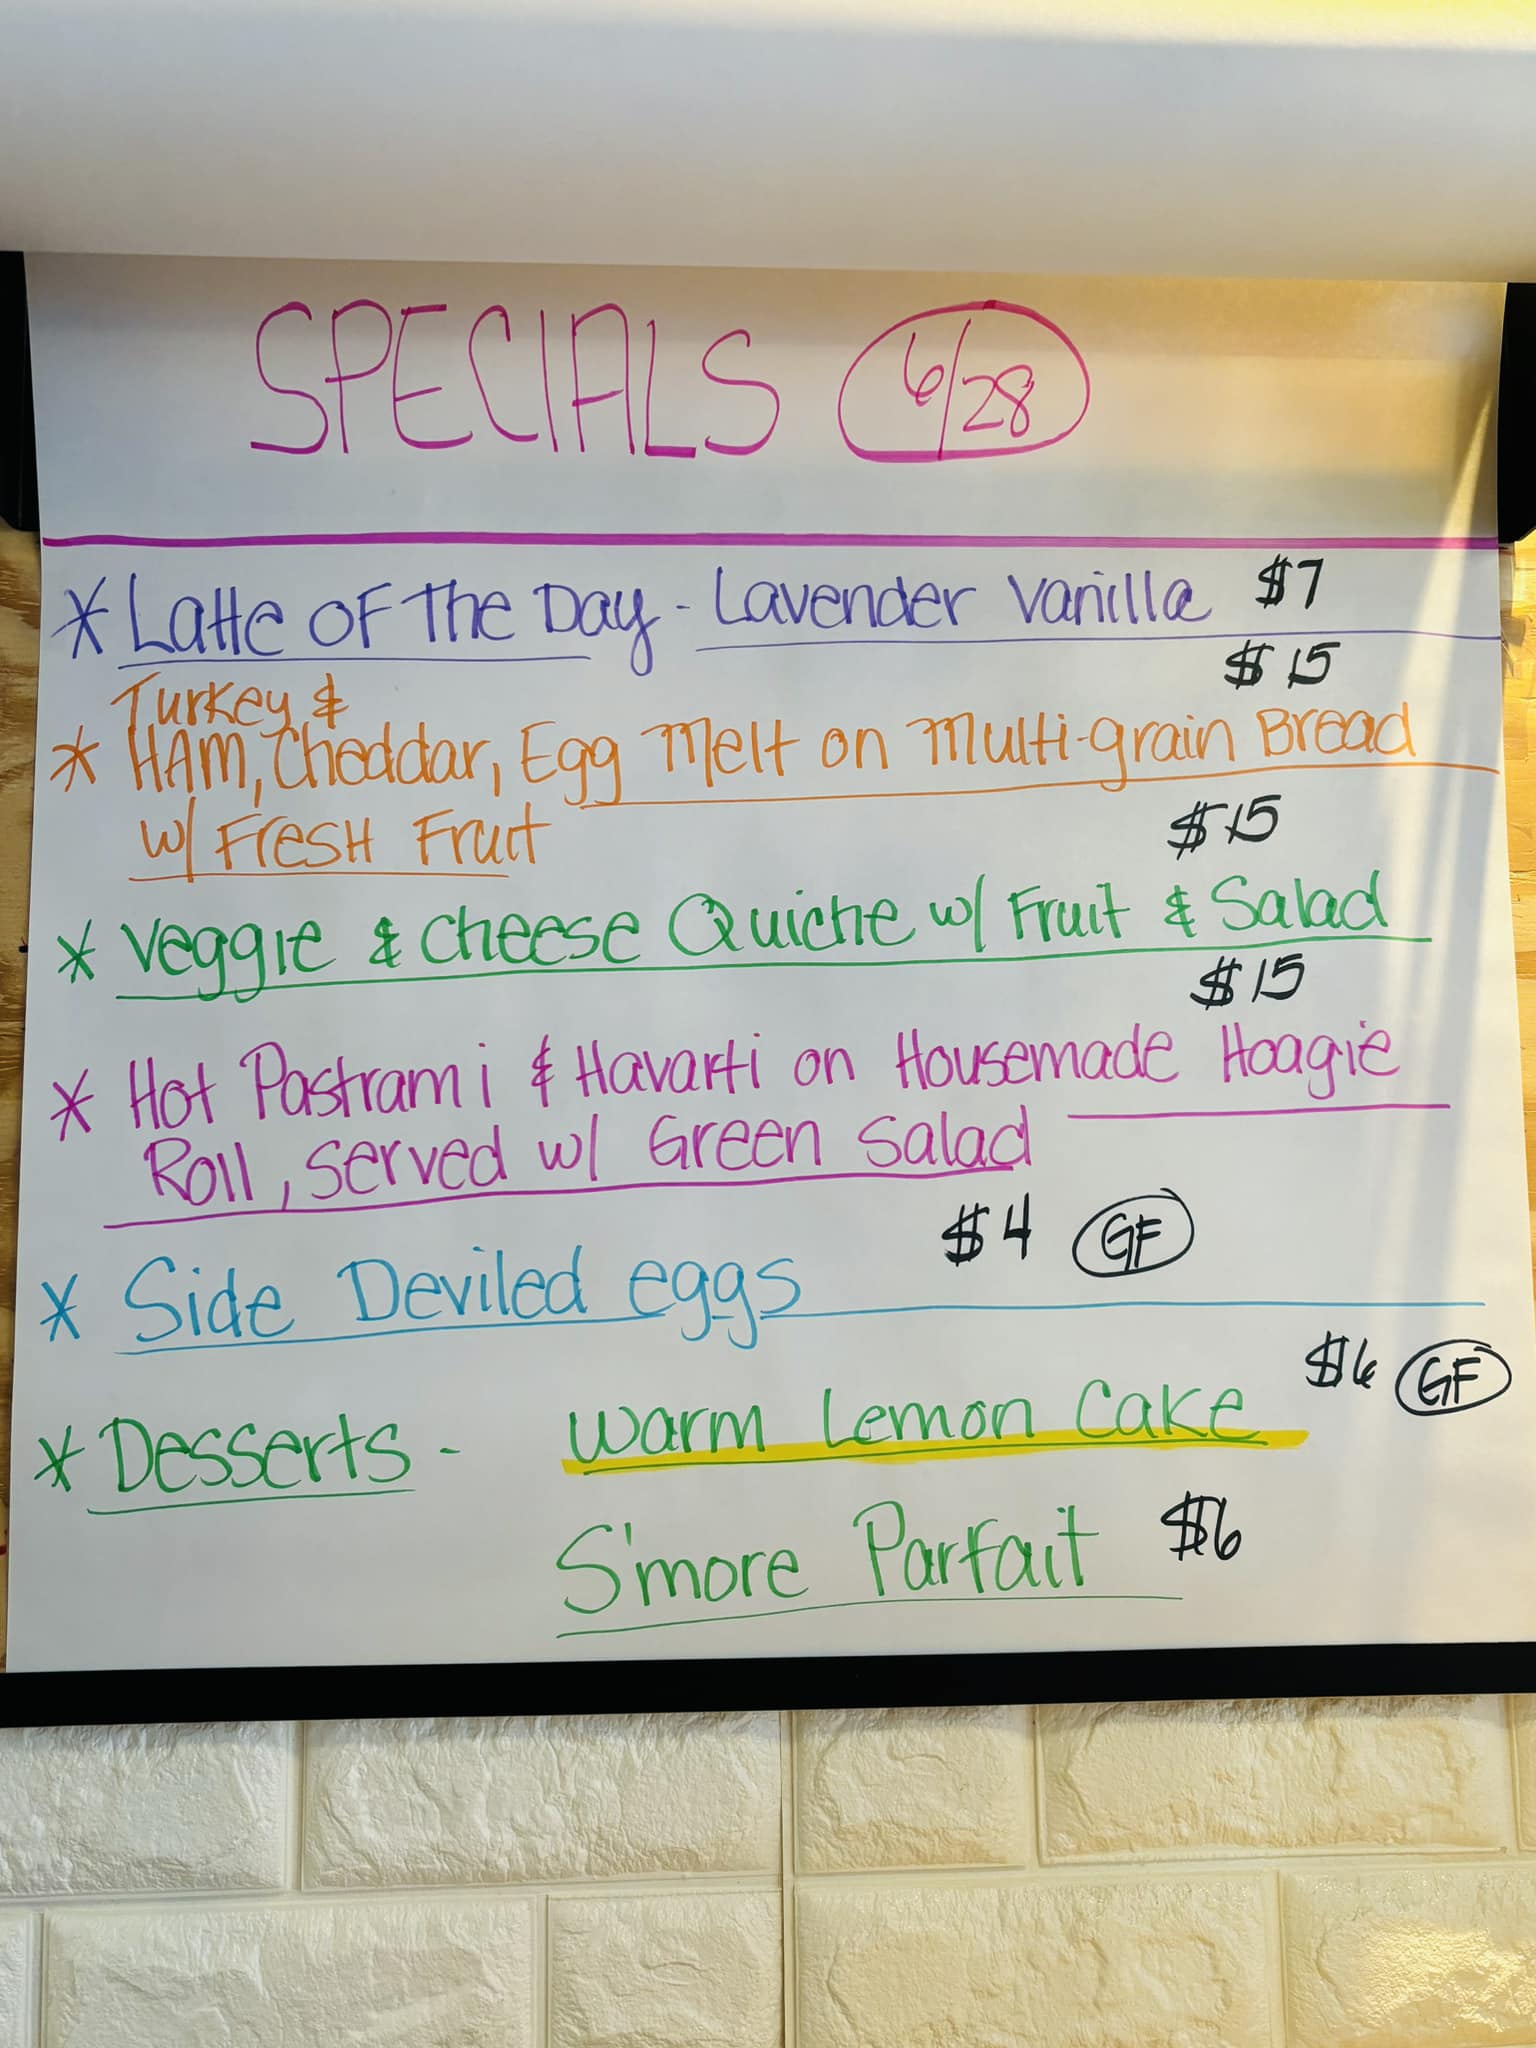 SPECIALS 6/28
* Latte OF The Day - Lavender Vanilla $7
$15
Turkey &
* HAM, Cheddar, Egg Melt on Multi-grain Bread
w/ FresH Fruit
$15
* Veggie & Cheese Quiche w/ Fruit & Salad
$15
* Hot Pastrami & Havarti on Housemade Hoagie
Roll, served w/ Green Salad
$4 GF
* Side Deviled eggs
$6 GF
* Desserts - Warm Lemon Cake
S'more Parfait $6